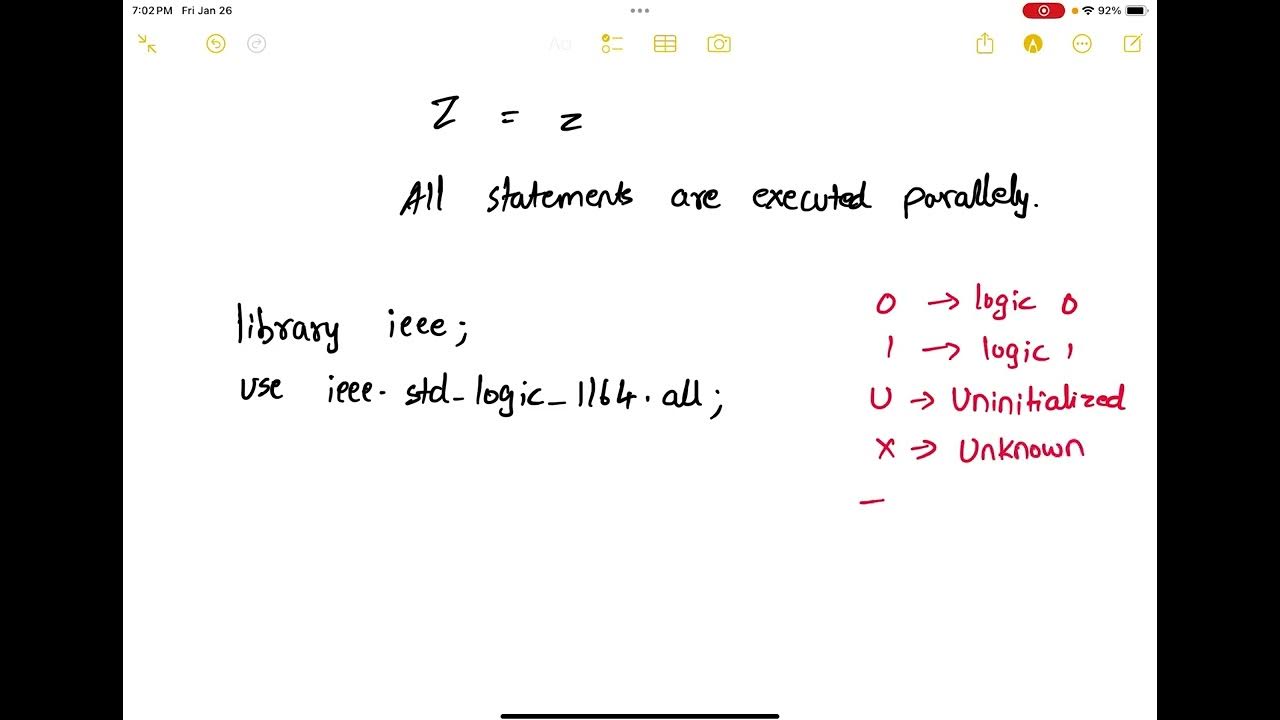 7:02 PM Fri Jan 26
92%
Aa
Z = z
All statements are executed parallely.
library ieee;
use ieee. std_logic_1164. all;
0 → logic 0
1 → logic 1
U → Uninitialized
X → Unknown
—